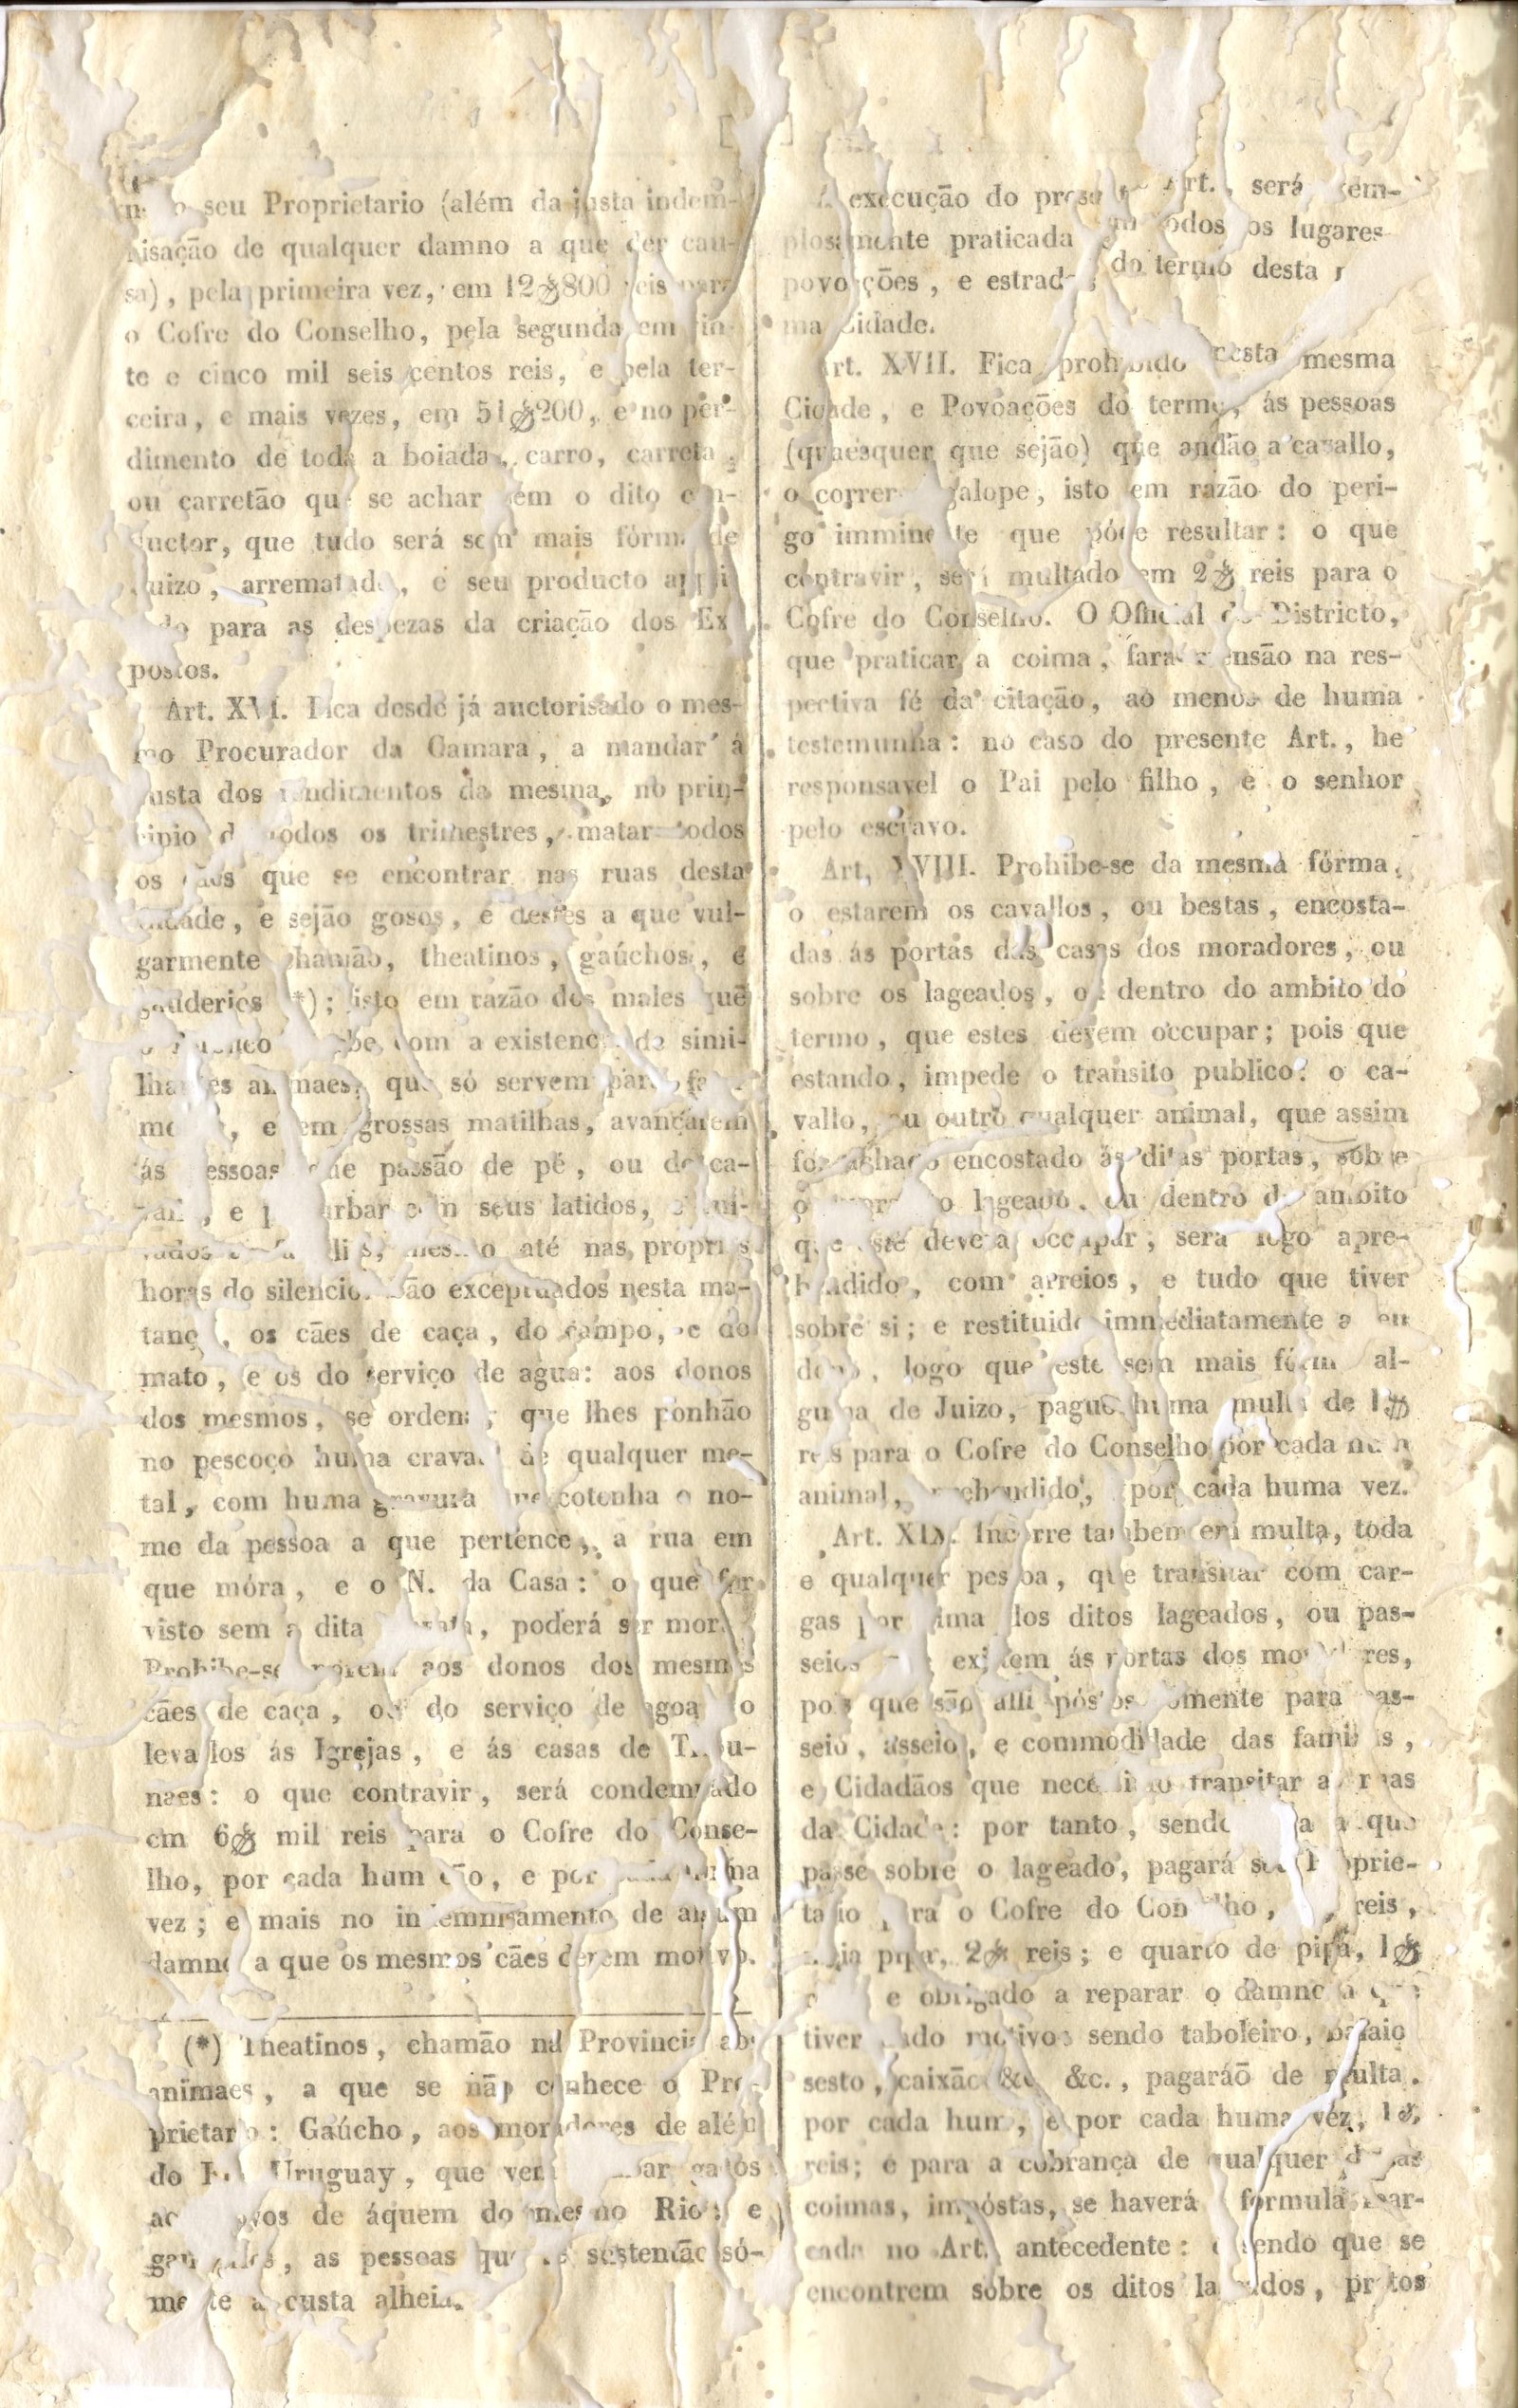 seu Proprietario (além da justa indem-
nisação de qualquer damno a que der cau-
sa), pela primeira vez, em 12$800 reis para
o Cofre do Conselho, pela segunda em vin-
te e cinco mil seis centos reis, e pela ter-
ceira, e mais vezes, em 51$200, e no per-
dimento de toda a boiada, carro, carreta,
ou carretão que se achar sem o dito con-
ductor, que tudo será sem mais fórma de
Juizo, arrematado, e seu producto appli
do para as despezas da criação dos Ex
postos.
Art. XVI. Fica desde já auctorisado o mes-
mo Procurador da Camara, a mandar á
custa dos rendimentos da mesma, no prin-
cipio de todos os trimestres, matar todos
os cães que se encontrar nas ruas desta
Cidade, e sejão gosos, e destes a que vul-
garmente chamão, theatinos, gaúchos, e
gauderios (*); isto em razão dos males que
com a existencia de simi-
lhantes animaes, que só servem para
e em grossas matilhas, avançarem
ás pessoas que passão de pé, ou de ca-
e perturbar com seus latidos,
mesmo até nas proprias
horas do silencio. São exceptuados nesta ma-
tança, os cães de caça, do campo, e do
mato, e os do serviço de agua: aos donos
dos mesmos, se ordena, que lhes ponhão
no pescoço huma de qualquer me-
tal, com huma gravura que cotenha o no-
me da pessoa a que pertence, a rua em
que móra, e o N. da Casa: o que for
visto sem a dita poderá ser
Prohibe-se porém aos donos dos mesmos
cães de caça, ou do serviço de agoa, o
levallos ás Igrejas, e ás casas de Tribu-
naes: o que contravir, será condemnado
em 6$ mil reis para o Cofre do Conse-
lho, por cada hum cão, e por cada huma
vez; e mais no indemnisamento de algum
damno a que os mesmos cães derem motivo.
(*) Theatinos, chamão na Provincia aos
animaes, a que se não conhece o Pro-
prietario: Gaúcho, aos moradores de além
do Rio Uruguay, que vem roubar gados
aos povos de áquem do mesmo Rio: e
gauderios, as pessoas que se sustentão só-
mente á custa alheia.
A execução do presente Art., será
praticada em todos os lugares
povoações, e estradas do termo desta
ma Cidade.
Art. XVII. Fica prohibido nesta mesma
Cidade, e Povoações do termo, ás pessoas
(quaesquer que sejão) que andão a cavallo,
o correr a galope, isto em razão do peri-
go imminente que póde resultar: o que
contravir, será multado em 2$ reis para o
Cofre do Conselho. O Official do Districto,
que praticar a coima, fará mensão na res-
pectiva fé da citação, ao menos de huma
testemunha: no caso do presente Art., he
responsavel o Pai pelo filho, e o senhor
pelo escravo.
Art. XVIII. Prohibe-se da mesma fórma,
o estarem os cavallos, ou bestas, encosta-
das ás portas das casas dos moradores, ou
sobre os lageados, ou dentro do ambito do
termo, que estes devem occupar; pois que
estando, impede o transito publico: o ca-
vallo, ou outro qualquer animal, que assim
for achado encostado ás ditas portas, sobre
o lageado, ou dentro do ambito
que este devera occupar, será logo apre-
hendido, com arreios, e tudo que tiver
sobre si; e restituido immediatamente a seu
dono, logo que este sem mais fórma al-
guma de Juizo, pague huma multa de 1$
reis para o Cofre do Conselho por cada hum
animal, aprehendido, por cada huma vez.
Art. XIX. Incorre tambem em multa, toda
e qualquer pessoa, que transitar com car-
gas por cima dos ditos lageados, ou pas-
seios que existem ás portas dos moradores,
pois que são alli póstos somente para pas-
seio, asseio, e commodidade das familias,
e Cidadãos que necessitão transitar as ruas
da Cidade: por tanto, sendo que
passe sobre o lageado, pagará seu Proprie-
tario para o Cofre do Conselho, reis,
meia pipa, 2$ reis; e quarto de pipa, 1$
e obrigado a reparar o damno a que
tiver dado motivo: sendo taboleiro, balaio
sesto, caixão &c. &c., pagaráõ de multa,
por cada hum, e por cada huma vez, 1$
reis; e para a cobrança de qualquer destas
coimas, impóstas, se haverá a formula mar-
cada no Art. antecedente: e sendo que se
encontrem sobre os ditos lageados, pretos